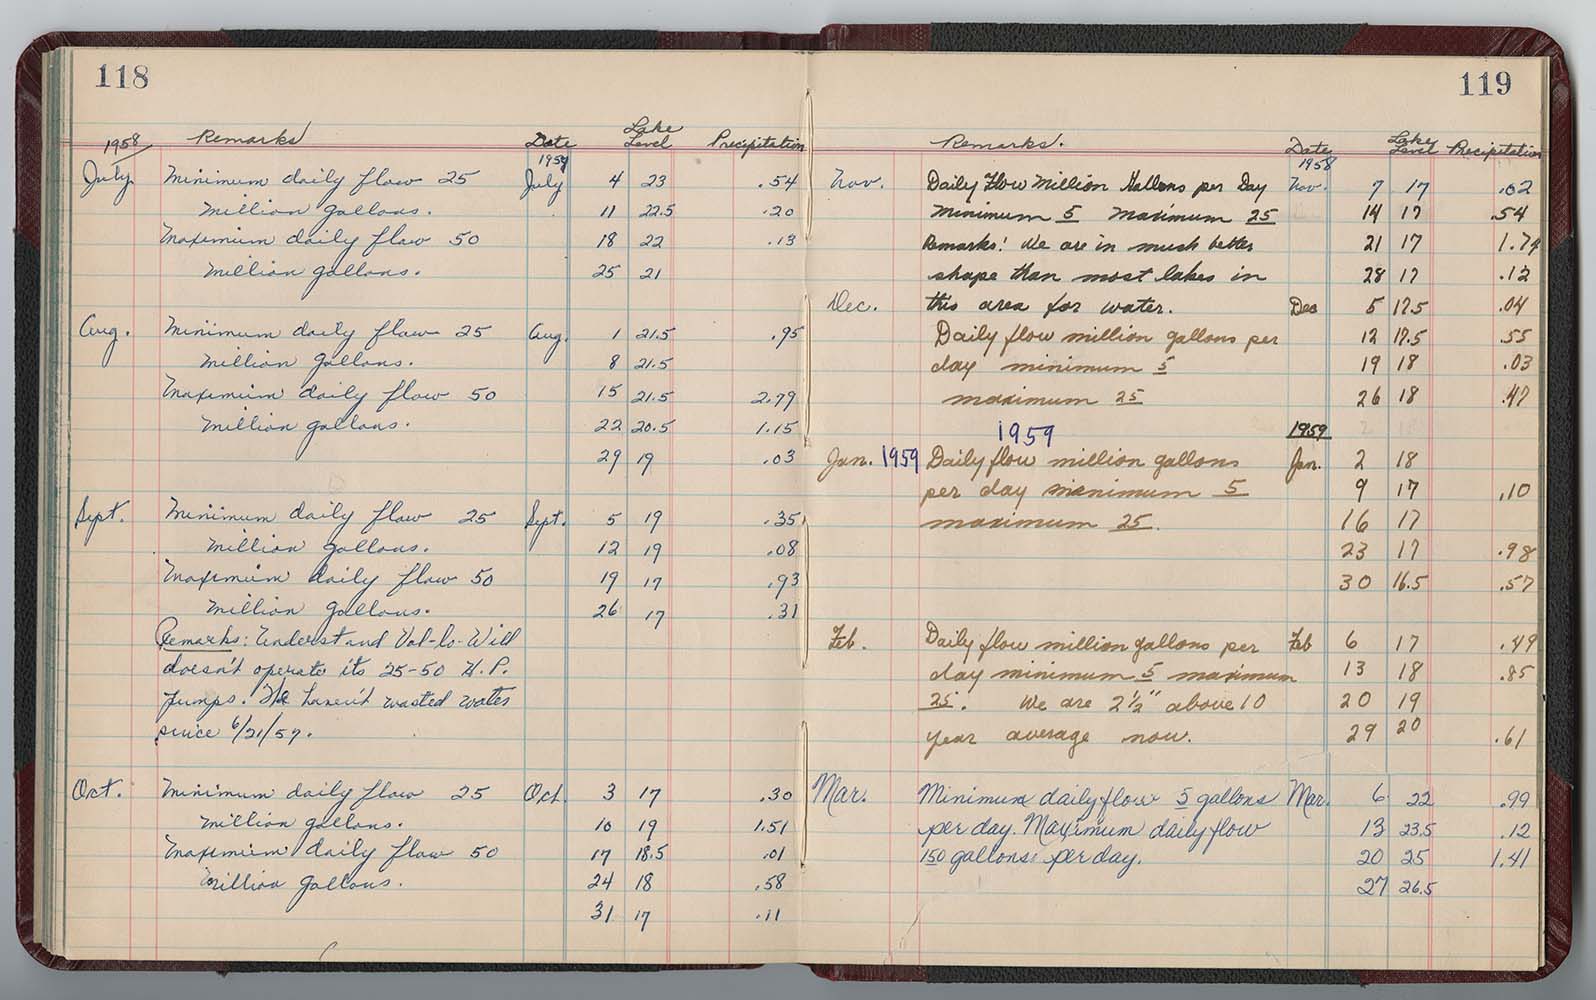 118
1958 Remarks Date Lake Level Precipitation
1958
July Minimum daily flow 25 July 4 23 .54
Million gallons. 11 22.5 .20
Maximum daily flow 50 18 22 .13
Million gallons. 25 21
Aug. Minimum daily flow 25 Aug. 1 21.5 .95
Million gallons. 8 21.5
Maximum daily flow 50 15 21.5 2.79
Million gallons. 22 20.5 1.15
29 19 .03
Sept. Minimum daily flow 25 Sept. 5 19 .35
Million gallons. 12 19 .08
Maximum daily flow 50 19 17 .93
Million gallons. 26 17 .31
Remarks: Understand Val-lo-Will
doesn't operate its 25-50 H.P.
pumps. We haven't wasted water
since 6/21/57.
Oct. Minimum daily flow 25 Oct. 3 17 .30
Million gallons. 10 19 1.51
Maximum daily flow 50 17 18.5 .01
Million gallons. 24 18 .58
31 17 .11
119
Remarks. Date Lake Level Precipitation
1958
Nov. Daily Flow Million Gallons per Day Nov. 7 17 .02
Minimum 5 Maximum 25 14 17 .54
Remarks! We are in much better 21 17 1.74
shape than most lakes in 28 17 .12
Dec. this area for water. Dec 5 17.5 .04
Daily flow million gallons per 12 17.5 .55
day minimum 5 19 18 .03
maximum 25 26 18 .47
1959 1959
Jan. 1959 Daily flow million gallons Jan. 2 18
per day minimum 5 9 17 .10
maximum 25. 16 17
23 17 .98
30 16.5 .57
Feb. Daily flow million gallons per Feb 6 17 .49
day minimum 5 maximum 13 18 .85
25. We are 2½" above 10 20 19
year average now. 29 20 .61
Mar. Minimum daily flow 5 gallons Mar. 6 22 .99
per day. Maximum daily flow 13 23.5 .12
150 gallons per day. 20 25 1.41
27 26.5